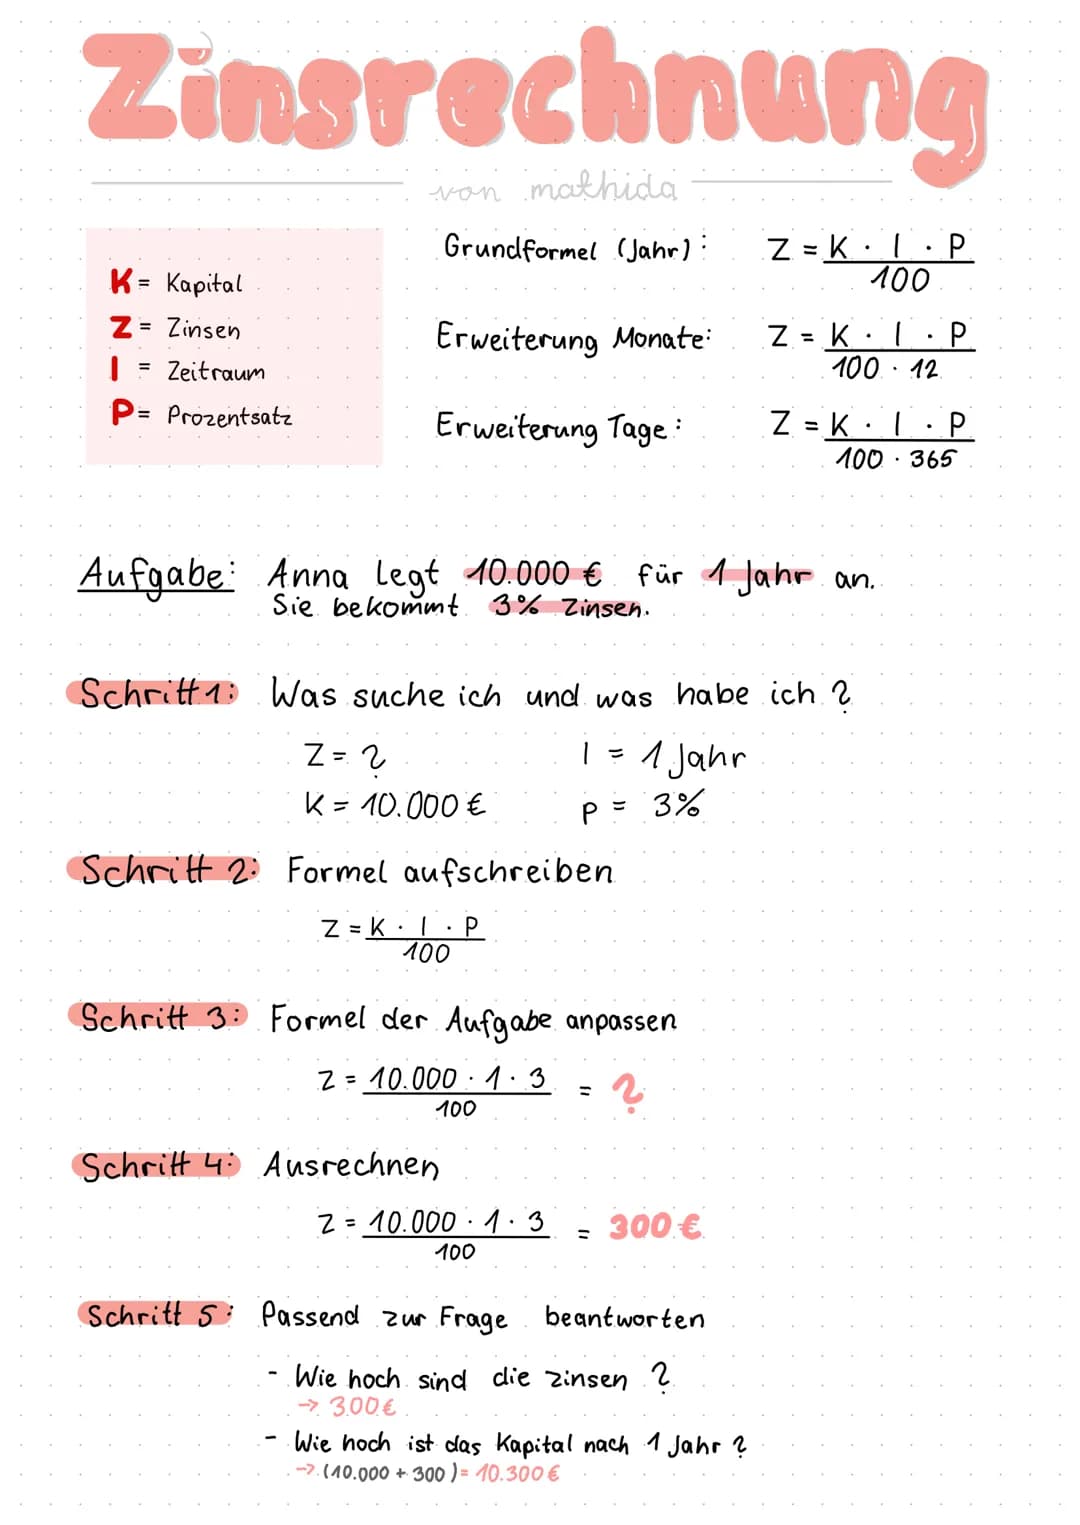 Zinsrechnung
von mathida
K = Kapital
Z = Zinsen
I = Zeitraum
P = Prozentsatz
Grundformel (Jahr): Z = K · I · P
100
Erweiterung Monate: Z = K · I · P
100 · 12
Erweiterung Tage: Z = K · I · P
100 · 365
Aufgabe: Anna legt 10.000 € für 1 Jahr an.
Sie bekommt 3% Zinsen.
Schritt 1: Was suche ich und was habe ich?
Z = ? I = 1 Jahr
K = 10.000 € p = 3%
Schritt 2: Formel aufschreiben
Z = K · I · P
100
Schritt 3: Formel der Aufgabe anpassen
Z = 10.000 · 1 · 3 = ?
100
Schritt 4: Ausrechnen
Z = 10.000 · 1 · 3 = 300 €
100
Schritt 5: Passend zur Frage beantworten
- Wie hoch sind die zinsen?
→ 300 €
- Wie hoch ist das Kapital nach 1 Jahr?
→ (10.000 + 300) = 10.300 €